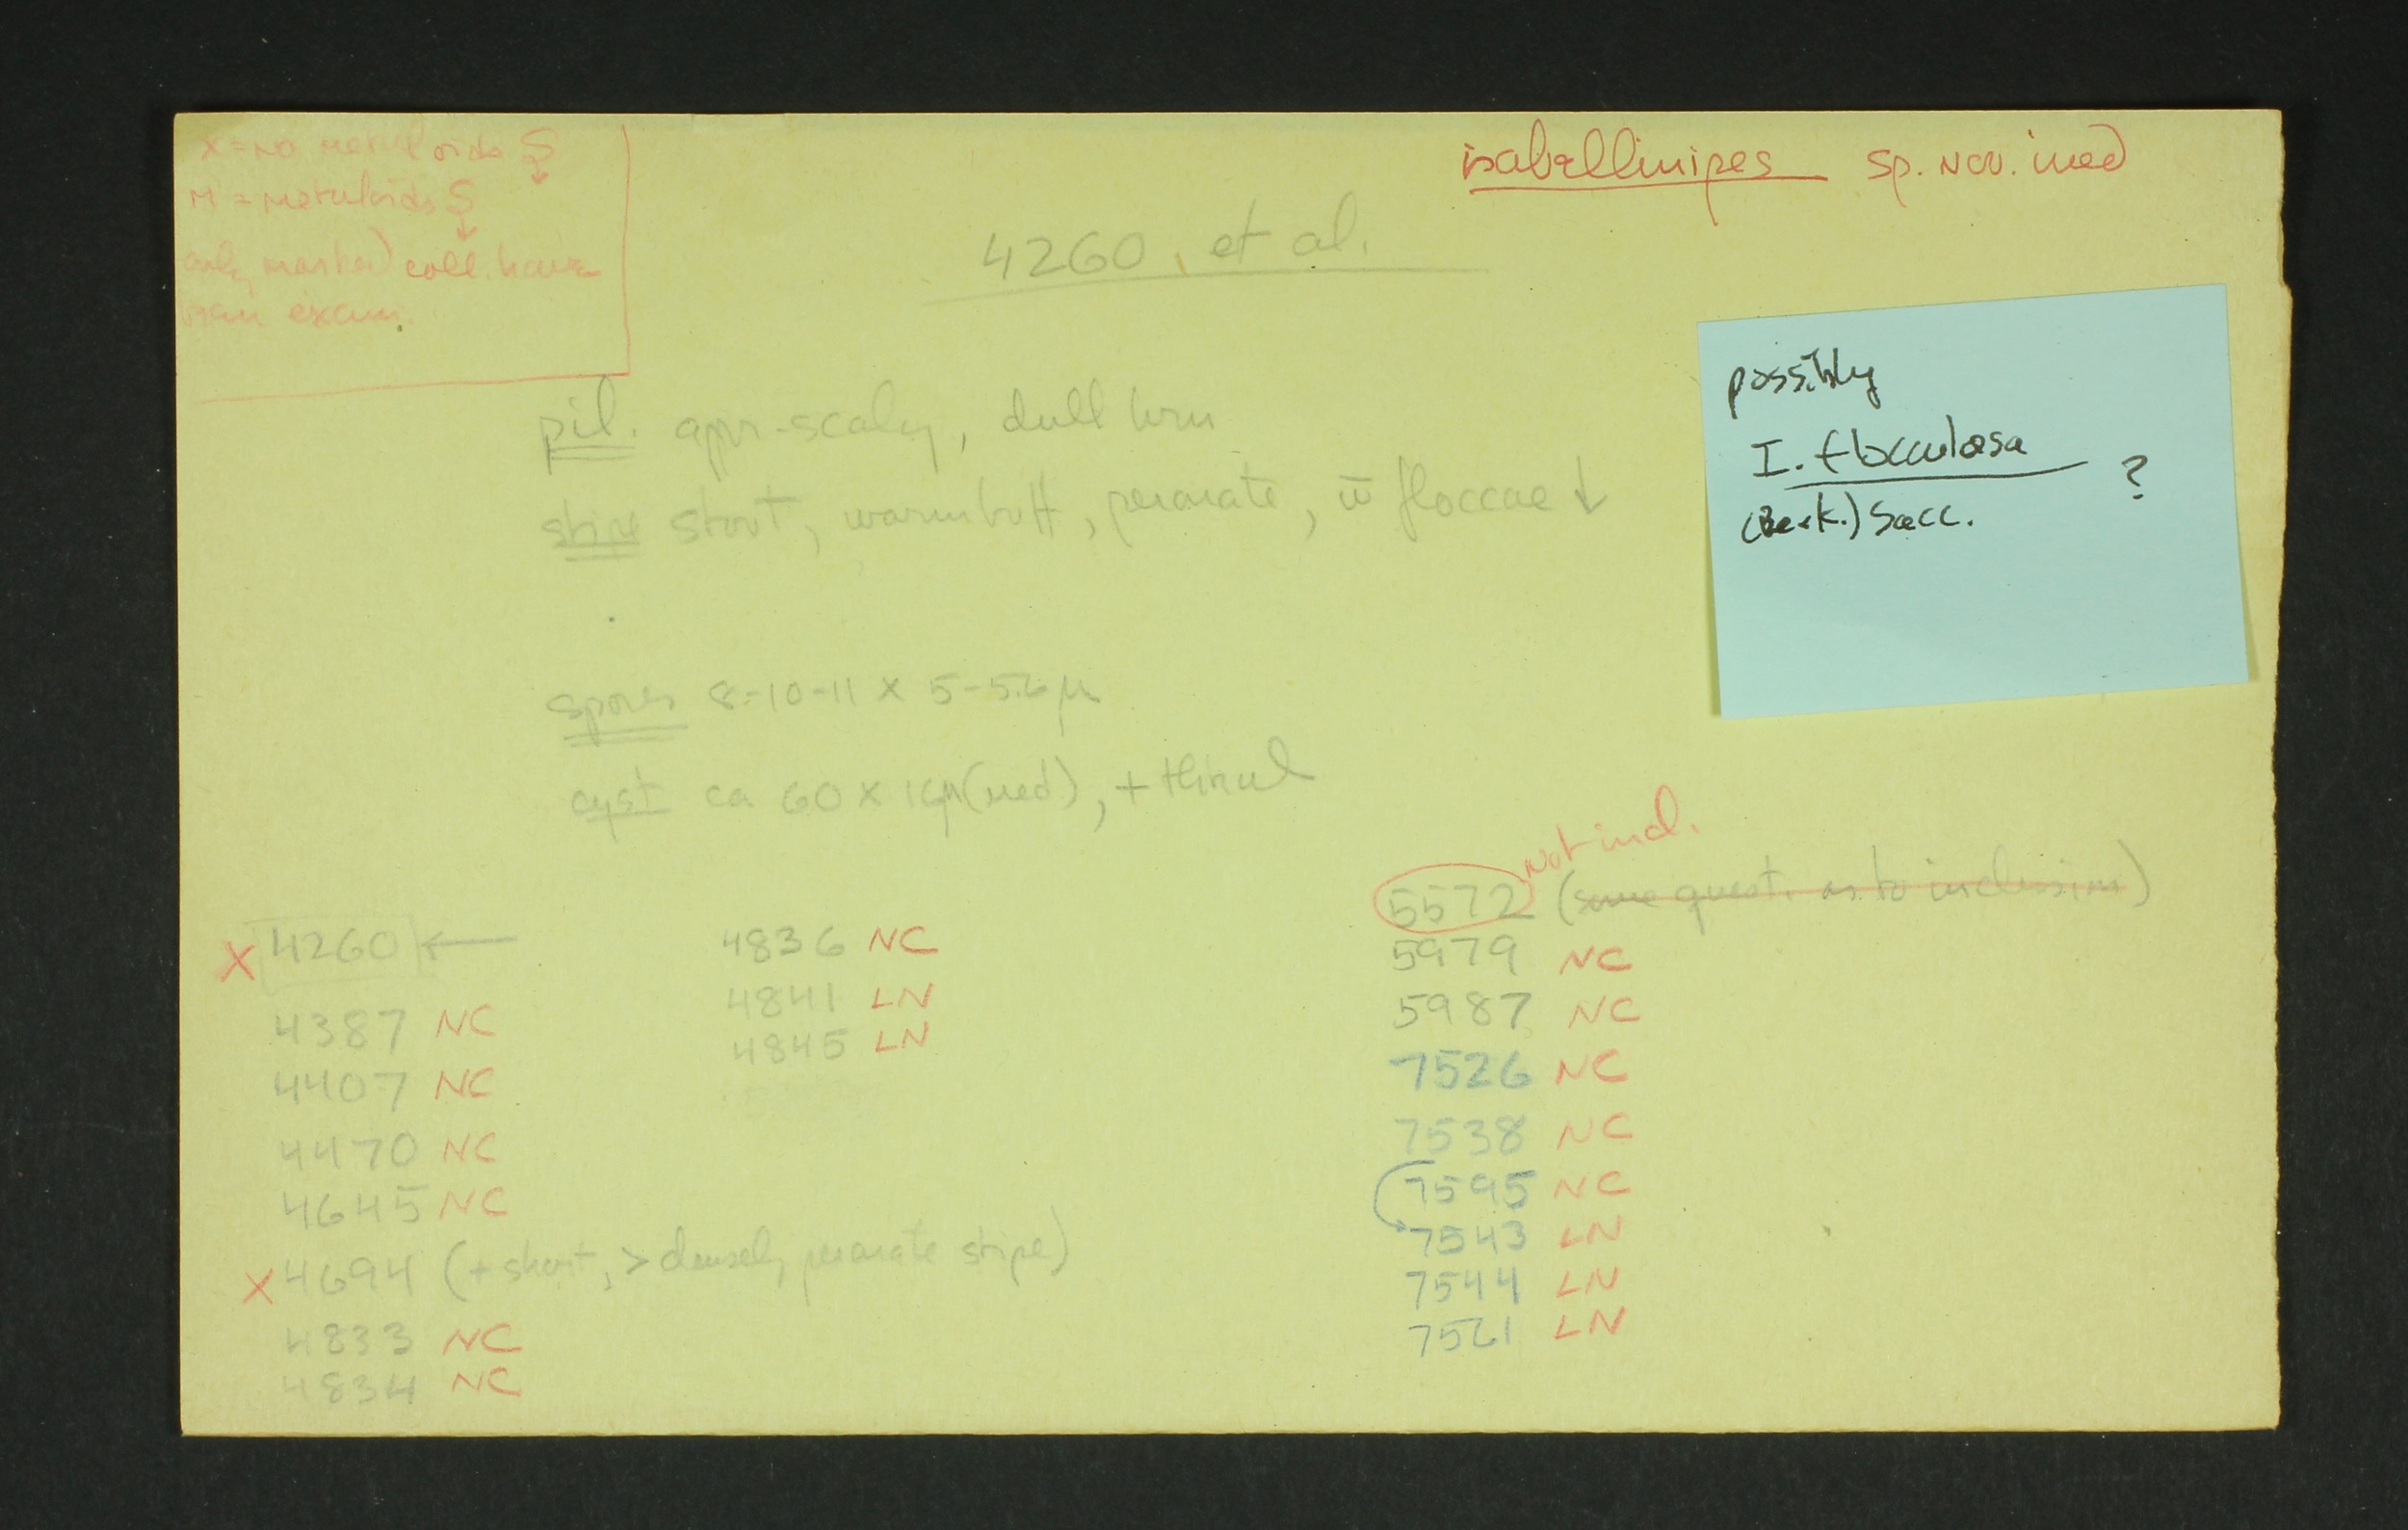 X = no metuloids S↓
M = metuloids S↓
only marked coll. have
been exam.
isabellinipes sp. nov. ined
4260, et al.
possibly
I. flocculosa ?
(Berk.) Sacc.
pil. appr-scaly, dull brn
stipe stout, warm buff, peronate, w̄ floccae ↓
spores 8-10-11 x 5-5.6 µ
cyst ca 60 x 16µ (med), + thinwl
X 4260 ←
4387 NC
4407 NC
4470 NC
4645 NC
X 4694 (+ short, > densely peronate stipe)
4833 NC
4834 NC
4836 NC
4841 LN
4845 LN
not incl.
5572 (some quest. as to inclusion)
5979 NC
5987 NC
7526 NC
7538 NC
7595 NC
7543 LN
7544 LN
7561 LN